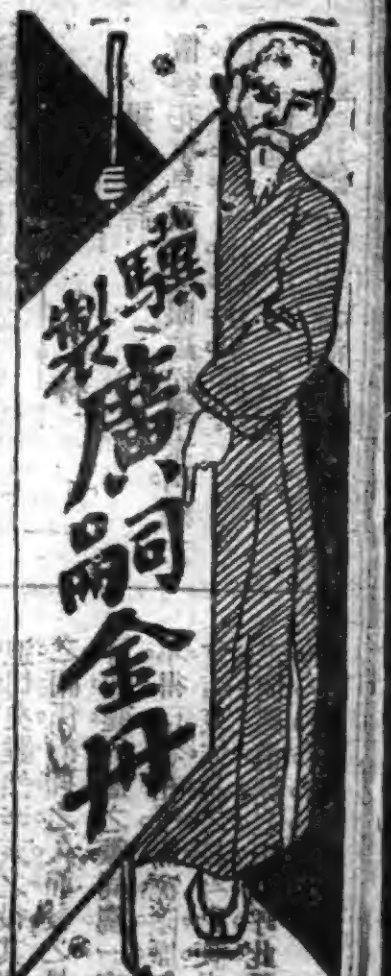 驥製
廣嗣金丹